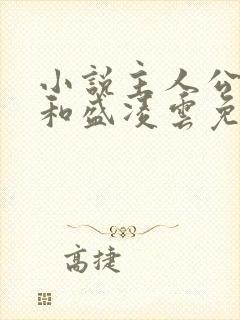 小說主人公
和盛凌雲免
高捷